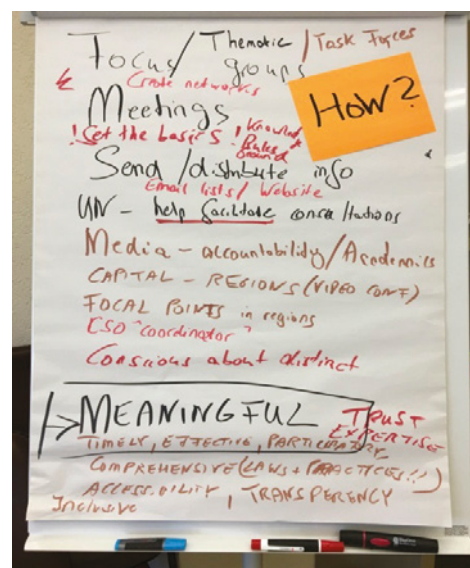 Focus / Thematic / Task Forces
groups
Create networks
HOW?
Meetings
! Get the basics ! Knowled
Rules
around
Send / distribute info
Email lists / Website
UN - help facilitate consultations
Media - accountability / Academics
CAPITAL - REGIONS (VIDEO CONF)
FOCAL POINTS in regions
CSO "coordinator"
Conscious about distinct
MEANINGFUL
TRUST
EXPERTISE
TIMELY, EFFECTIVE, PARTICIPATORY,
COMPREHENSIVE (LAWS + PRACTICES!!)
ACCESSIBILITY, TRANSPERENCY
Inclusive